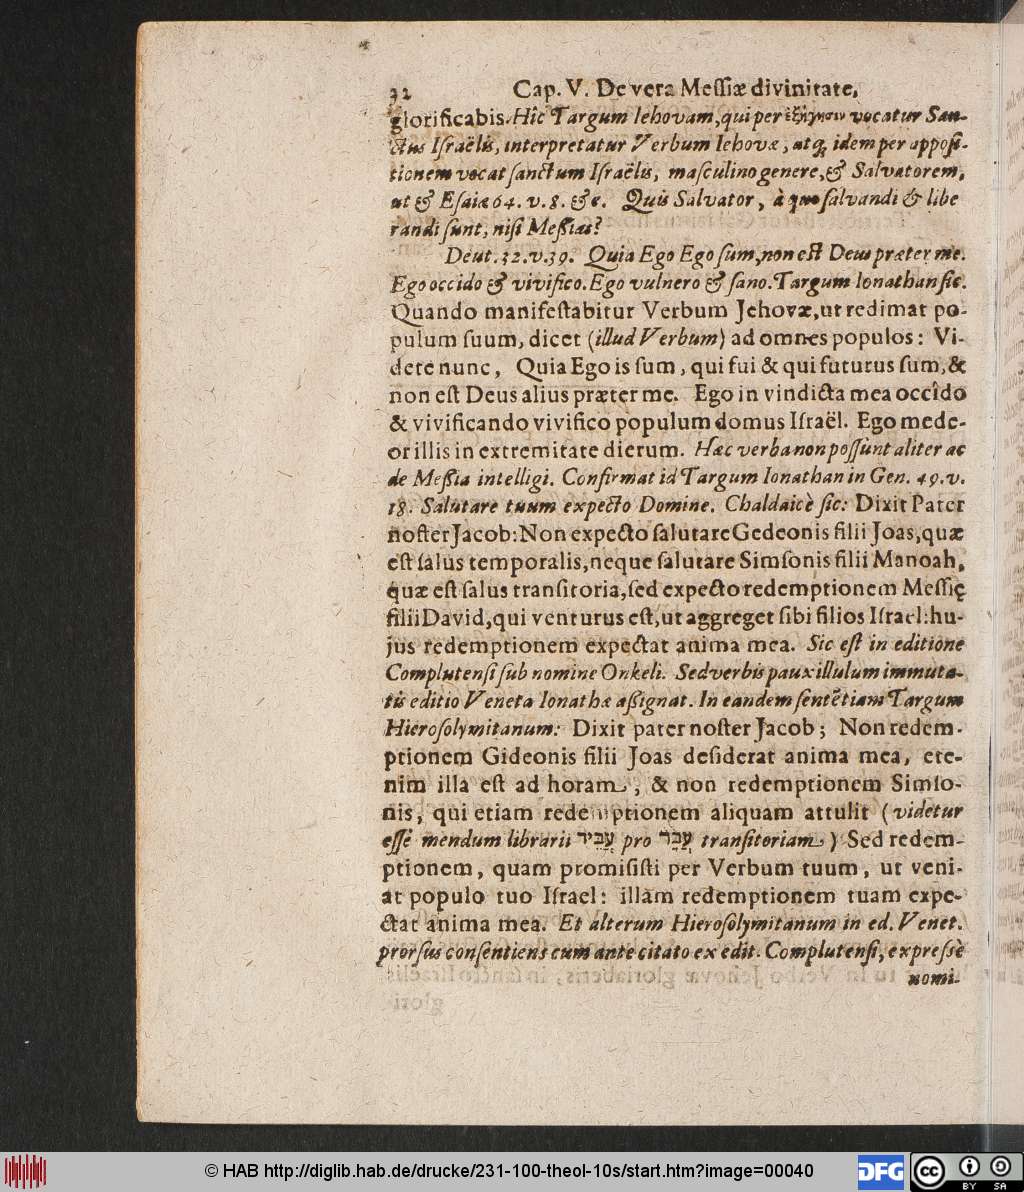 32 Cap. V. De vera Meſſiæ divinitate,
glorificabis. Hîc Targum Iehovam, qui per ἐξήγησιν vocatur San-
ctus Iſraëlis, interpretatur Verbum Iehovæ, atq; idem per appoſi-
tionem vocat ſanctum Iſraëlis, maſculino genere, & Salvatorem,
ut & Eſaiæ 64. v. 8. &c. Quis Salvator, à quo ſalvandi & libe
randi ſunt, niſi Meßias?
Deut. 32. v. 39. Quia Ego Ego ſum, non eſt Deus præter me.
Ego occido & vivifico. Ego vulnero & ſano. Targum Ionathan ſic.
Quando manifeſtabitur Verbum Jehovæ, ut redimat po-
pulum ſuum, dicet (illud Verbum) ad omnes populos: Vi-
dete nunc, Quia Ego is ſum, qui fui & qui futurus ſum, &
non eſt Deus alius præter me. Ego in vindicta mea occîdo
& vivificando vivifico populum domus Iſraël. Ego mede-
or illis in extremitate dierum. Hæc verba non poſſunt aliter ac
de Meßia intelligi. Confirmat id Targum Ionathan in Gen. 49. v.
18. Salutare tuum expecto Domine. Chaldaicè ſic: Dixit Pater
noſter Jacob: Non expecto ſalutare Gedeonis filii Joas, quæ
eſt ſalus temporalis, neque ſalutare Simſonis filii Manoah,
quæ eſt ſalus tranſitoria, ſed expecto redemptionem Meſſię
filii David, qui venturus eſt, ut aggreget ſibi filios Iſrael: hu-
jus redemptionem expectat anima mea. Sic eſt in editione
Complutenſi ſub nomine Onkeli. Sed verbis pauxillulum immuta-
tis editio Veneta Ionathæ aßignat. In eandem ſentẽtiam Targum
Hieroſolymitanum: Dixit pater noſter Jacob; Non redem-
ptionem Gideonis filii Joas deſiderat anima mea, ete-
nim illa eſt ad horam, & non redemptionem Simſo-
nis, qui etiam redemptionem aliquam attulit (videtur
eſſe mendum librarii עֲבֵיר pro עֲבַר tranſitoriam) Sed redem-
ptionem, quam promiſiſti per Verbum tuum, ut veni-
at populo tuo Iſrael: illam redemptionem tuam expe-
ctat anima mea. Et alterum Hieroſolymitanum in ed. Venet.
prorſus conſentiens cum ante citato ex edit. Complutenſi, expreſsè
nomi-
© HAB http://diglib.hab.de/drucke/231-100-theol-10s/start.htm?image=00040
DFG
cc BY SA